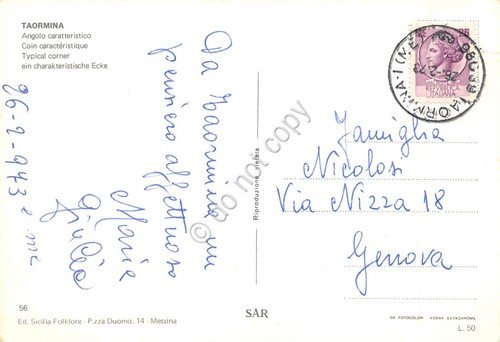 TAORMINA
Angolo caratteristico
Coin caractéristique
Typical corner
ein charakteristische Ecke
26-2-973
Da Taormina un
pensiero affettuoso
Maria
Famiglia
Nicolosi
Via Nizza 18
Genova
25
REPUBBLICA
ITALIANA
98039 TAORMINA-1 (ME)
Riproduzione vietata
© do not copy
56
Ed. Sicilia Folklore - P.zza Duomo, 14 - Messina
SAR
DA FOTOCOLOR KODAK EKTACHROME
L. 50